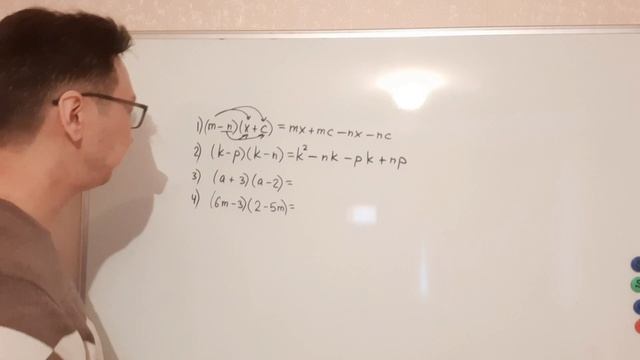 1) (m-n)(x+c) = mx+mc-nx-nc
2) (k-p)(k-n)=k²-nk-pk+np
3) (a+3)(a-2)=
4) (6m-3)(2-5m)=